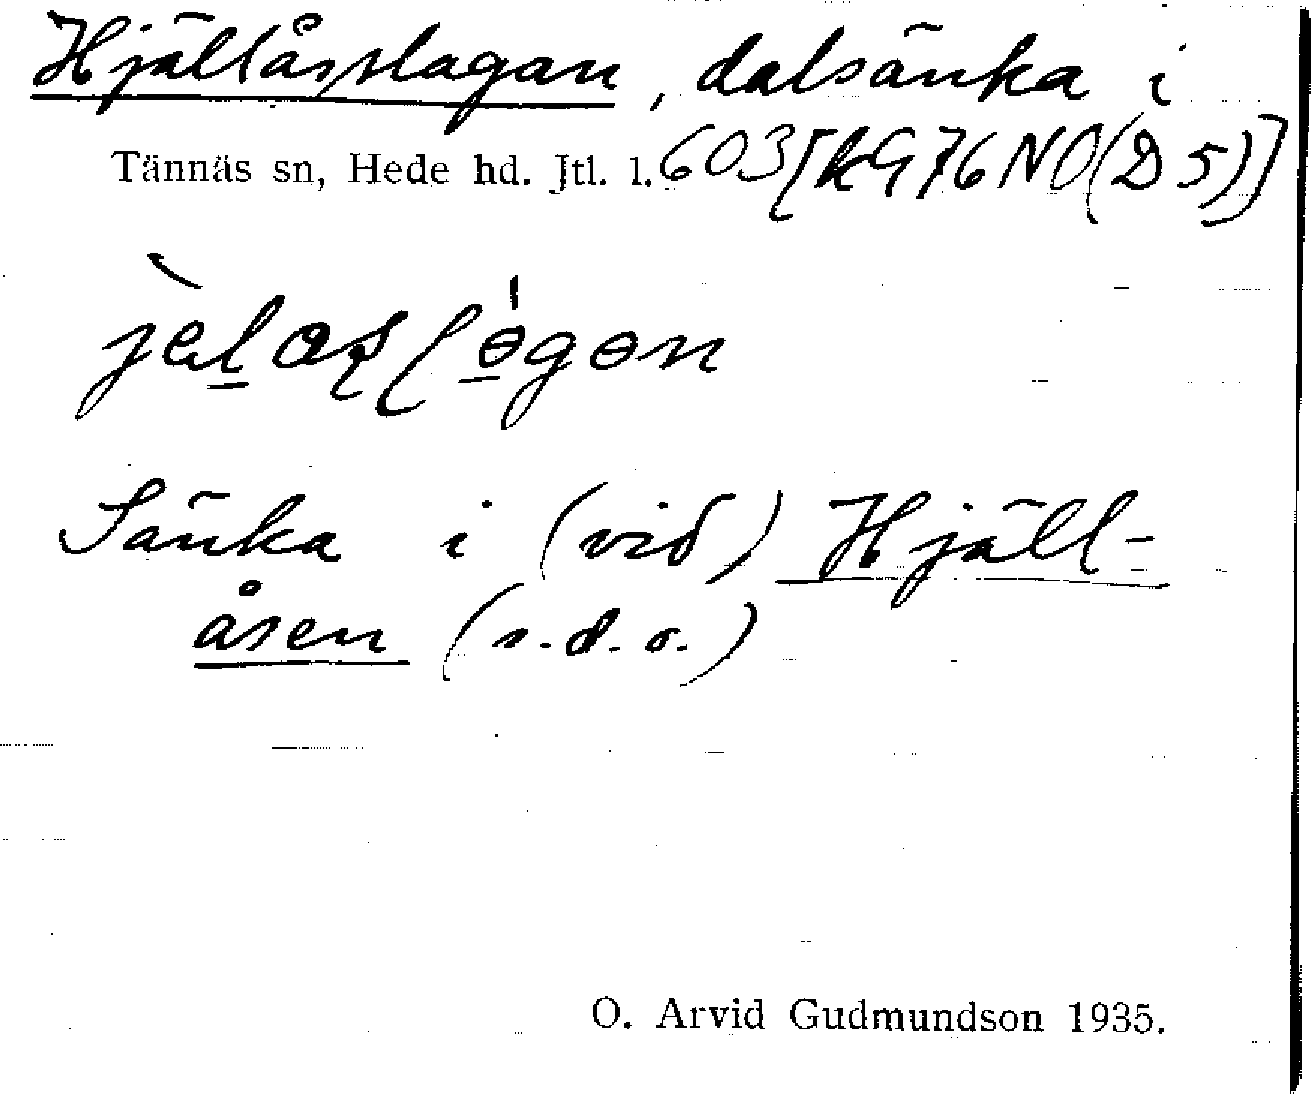 Hjällåsslagan, dalsänka i
Tännäs sn, Hede hd. Jtl. l. 603 [kG76NO(D5)]
Sänka i (vid) Hjäll-
åsen (s.d.o.)
O. Arvid Gudmundson 1935.